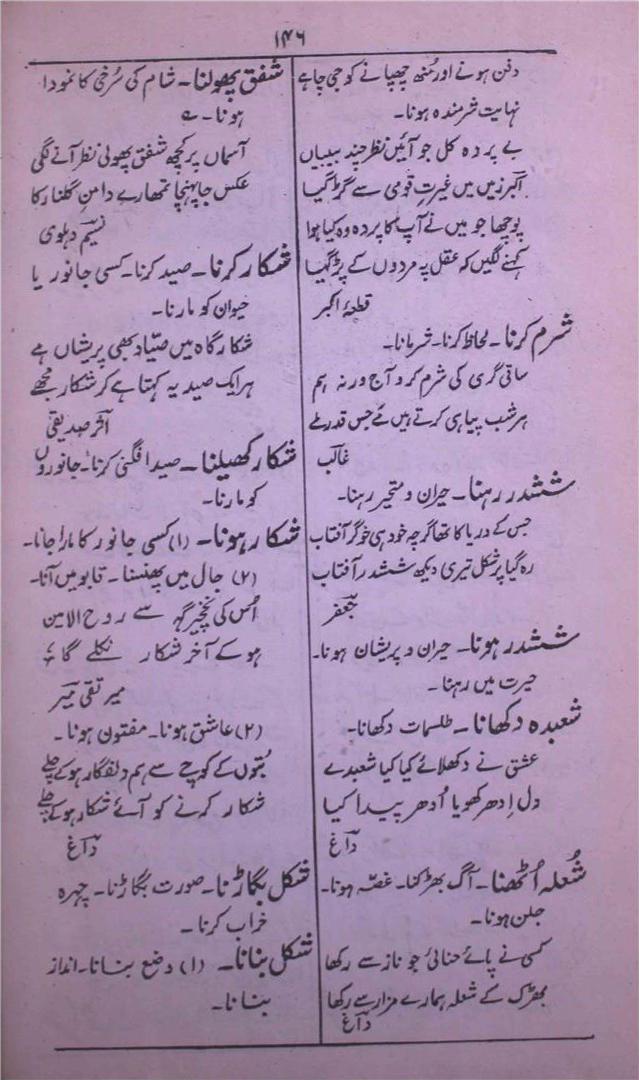 ۱۴۶
دفن ہونے اور مُنھ چھپانے کو جی چاہے
نہایت شرمندہ ہونا۔
بے پردہ کل جو آئیں نظر چند بیبیاں
اکبر زمیں میں غیرتِ قومی سے گڑ گیا
پوچھا جو میں نے آپ کا پردہ وہ کیا ہوا
کہنے لگیں کہ عقل پہ مردوں کے پڑ گیا
قطعۂ اکبر
شرم کرنا۔ لحاظ کرنا۔ شرمانا۔
ساقی گری کی شرم کرو آج ورنہ ہم
ہر شب پیا ہی کرتے ہیں مے جس قدر ملے
غالب
ششدر رہنا۔ حیران و متحیر رہنا۔
جس کے دریا کا تھا گرچہ خود ہی خوگر آفتاب
رہ گیا پر شکل تیری دیکھ ششدر آفتاب
جعفر
ششدر ہونا۔ حیران و پریشان ہونا۔
حیرت میں رہنا۔
شعبدہ دکھانا۔ طلسمات دکھانا۔
عشق نے دکھلائے کیا کیا شعبدے
دل اِدھر کھویا اُدھر پیدا کیا
داغ
شُعلہ اُٹھنا۔ آگ بھڑکنا۔ غصّہ ہونا۔
جلن ہونا۔
کسی نے پائے حنائی جو ناز سے رکھا
بھڑک کے شعلہ ہمارے مزار سے رکھا
داغ
شفق پھولنا۔ شام کی سُرخی کا نمودا
ہونا۔ ؎
آسماں پر کچھ شفق پھولی نظر آنے لگی
عکس جا پہنچا تمھارے دامنِ گلنار کا
نسیم دہلوی
شکار کرنا۔ صید کرنا۔ کسی جانور یا
حیوان کو مارنا۔
شکار گاہ میں صیّاد بھی پریشاں ہے
ہر ایک صید یہ کہتا ہے کر شکار مجھے
صدیقی
شکار کھیلنا۔ صید افگنی کرنا۔ جانوروں
کو مارنا۔
شکار ہونا۔ (۱) کسی جانور کا مارا جانا۔
(۲) جال میں پھنسنا۔ قابو میں آنا۔
اُس کی نخچیر گہہ سے روح الامین
ہو کے آخر شکار نکلے گا
میر تقی میر
(۲) عاشق ہونا۔ مفتون ہونا۔
بُتوں کے کوچے سے ہم دلفگار ہو کے چلے
شکار کرنے کو آئے شکار ہو کے چلے
داغ
شکل بگاڑنا۔ صورت بگاڑنا۔ چہرہ
خراب کرنا۔
شکل بنانا۔ (۱) وضع بنانا۔ انداز
بنانا۔